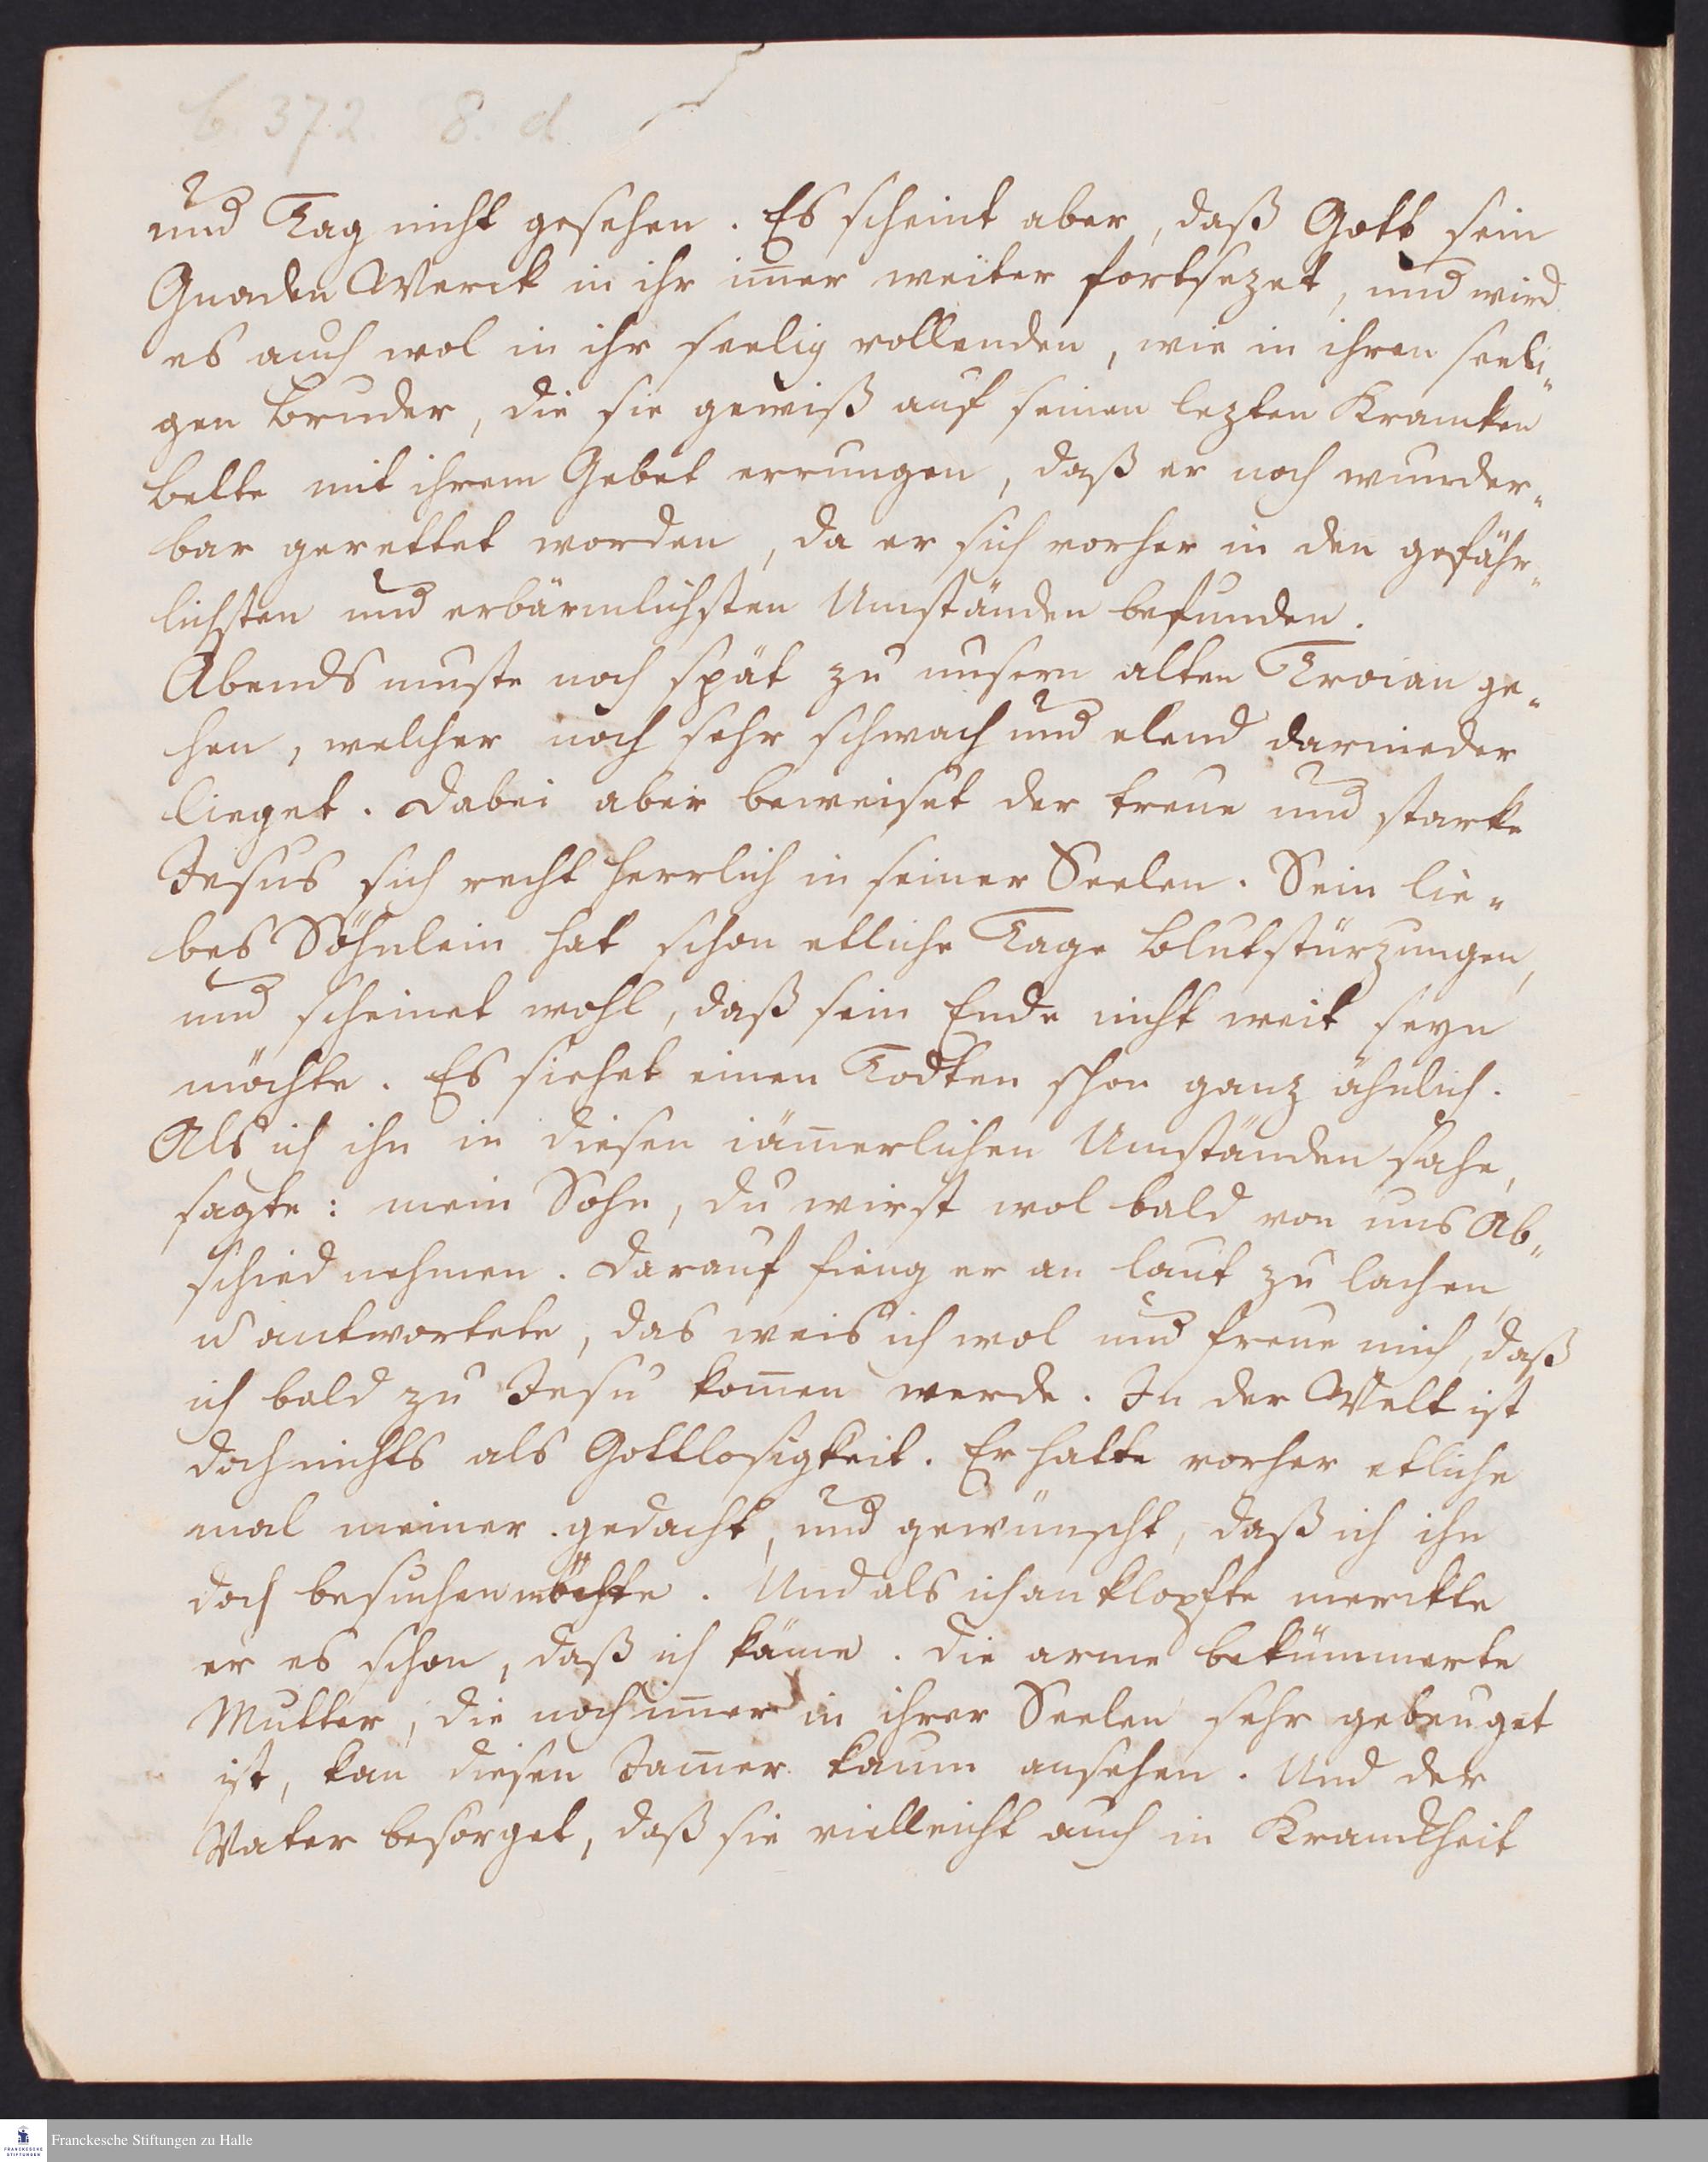 C 372 8. d
und Tag nicht gesehen. Es scheint aber, daß Gott sein
Gnaden Werck in ihr im̄er weiter fortsezet, und wird
es auch wol in ihr seelig vollenden, wie in ihren seeli„
gen Bruder, die sie gewiß auf seinen lezten Krancken
bette mit ihrem Gebet errungen, daß er noch wunder„
bar gerettet worden, da er sich vorher in den gefähr„
lichsten und erbärmlichsten Umständen befunden.
Abends muste noch spät zu unsern alten Troian ge„
hen, welcher noch sehr schwach und elend darnieder
lieget. Dabei aber beweiset der treue und starke
Jesus sich recht herrlich in seiner Seelen. Sein lie„
bes Söhnlein hat schon etliche Tage Blutstürzungen,
und scheinet wohl, daß sein Ende nicht weit seyn
möchte. Es siehet einen Todten schon ganz ähnlich.
Als ich ihn in diesen iäm̄erlichen Umständen sahe,
sagte: mein Sohn, du wirst wol bald von uns Ab„
schied nehmen. Darauf fieng er an laut zu lachen
u antwortete, das weis ich wol und freue mich, daß
ich bald zu Jesu kom̄en werde. In der Welt ist
doch nichts als Gottlosigkeit. Er hatte vorher etliche
mal meiner gedacht, und gewünscht, daß ich ihn
doch besuchen möchte. Und als ich anklopfte merckte
er es schon, daß ich käme. Die arme bekümmerte
Mutter, die noch im̄er in ihrer Seelen sehr gebeuget
ist, kan diesen Jam̄er kaum ansehen. Und der
Vater besorget, daß sie vielleicht auch in Kranckheit
Franckesche Stiftungen zu Halle
FRANCKESCHE
STIFTUNGEN